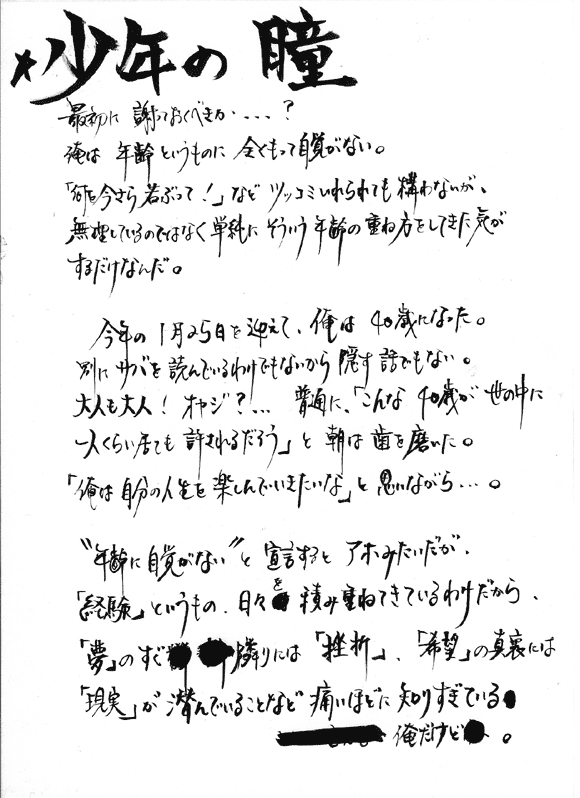 ★少年の瞳
最初に謝っておくべきか・・・・?
俺は年齢というものに全くもって自覚がない。
「何を今さら若ぶって!」などツッコミいれられても構わないが、
無理しているのではなく単純にそういう年齢の重ね方をしてきた気が
するだけなんだ。
今年の1月25日を迎えて、俺は40歳になった。
別にサバを読んでいるわけでもないから隠す話でもない。
大人も大人!オヤジ?... 普通に、「こんな40歳が世の中に
一人くらい居ても許されるだろう」と朝は歯を磨いた。
「俺は自分の人生を楽しんでいきたいな」と思いながら...。
"年齢に自覚がない"と宣言するとアホみたいだが、
「経験」というもの、日々を積み重ねてきているわけだから、
「夢」のすぐ隣りには「挫折」、「希望」の真裏には
「現実」が潜んでいることなど痛いほどに知りすぎている
俺だけど。